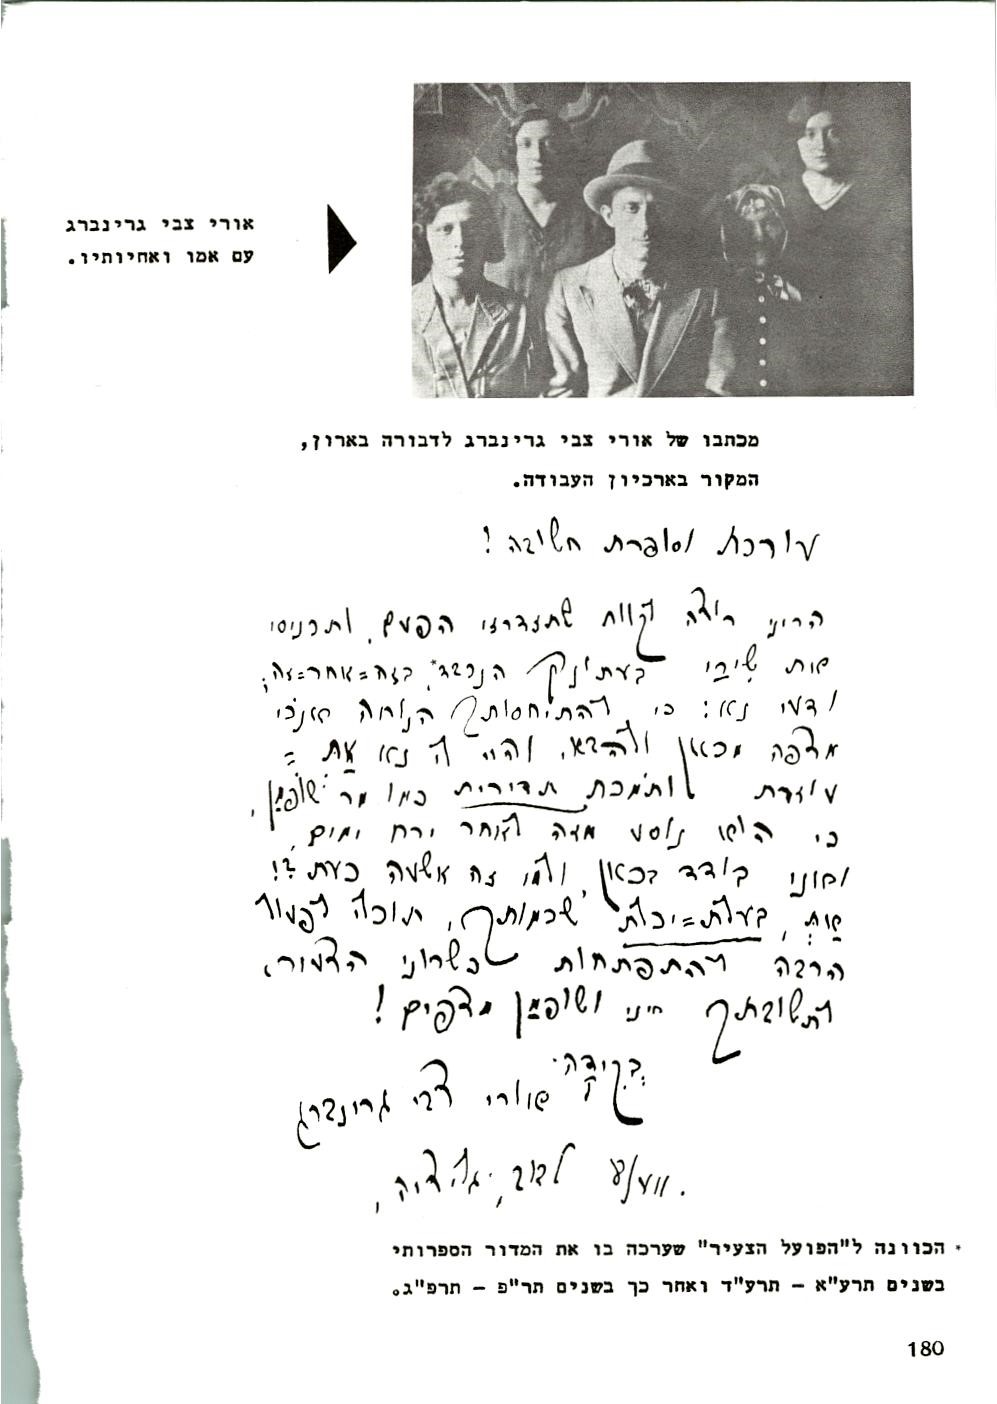 אורי צבי גרינברג
עם אמו ואחיותיו.
מכתבו של אורי צבי גרינברג לדבורה בארון,
המקור בארכיון העבודה.
עורכת וסופרת חשובה!
הריני רוצה לקוות שתזדרזי הפעם, ותכניסי
את שירי בעתונך הנכבד* בזה=אחר=זה;
ודעי נא: כי להתיחסותך הנוחה אנכי
מצפה מכאן ולהבא, והיי לי נא עתה =
עוזרת ותומכת תדירית כמו מר שופמן,
כי הוא נוסע מזה לאחר ירח ימים,
ואני בודד בכאן, ולמי זה אשעה כעת?!
את, בעלת=יכולת שכמותך, תוכלי לפעול
הרבה להתפתחות כשרוני הצעיר,
לתשובתך חיני ושופמן מצפים!
בקידה.
אורי צבי גרינברג
לבוב, גליציה,
* הכוונה ל"הפועל הצעיר" שערכה בו את המדור הספרותי
בשנים תרע"א – תרע"ד ואחר כך בשנים תר"פ – תרפ"ג.
180